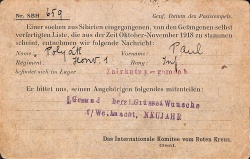 Nr. SBH 659 Genf, Datum des Poststempels.
Einer soeben aus Sibirien eingegangenen, von den Gefangenen selbst
verfertigten Liste, die aus der Zeit Oktober-November 1918 zu stammen
scheint, entnehmen wir folgende Nachricht:
Name: Polyák Paul
Regiment: Honv. 1 Rang: Inf
befindet sich im Lager
Er bittet uns, seinen Angehörigen folgendes mitzuteilen:
Gesund herzl. Grüsse Wünsche
f/Weihnacht, NEUJAHR
Das Internationale Komitee vom Roten Kreuz
(Genf).